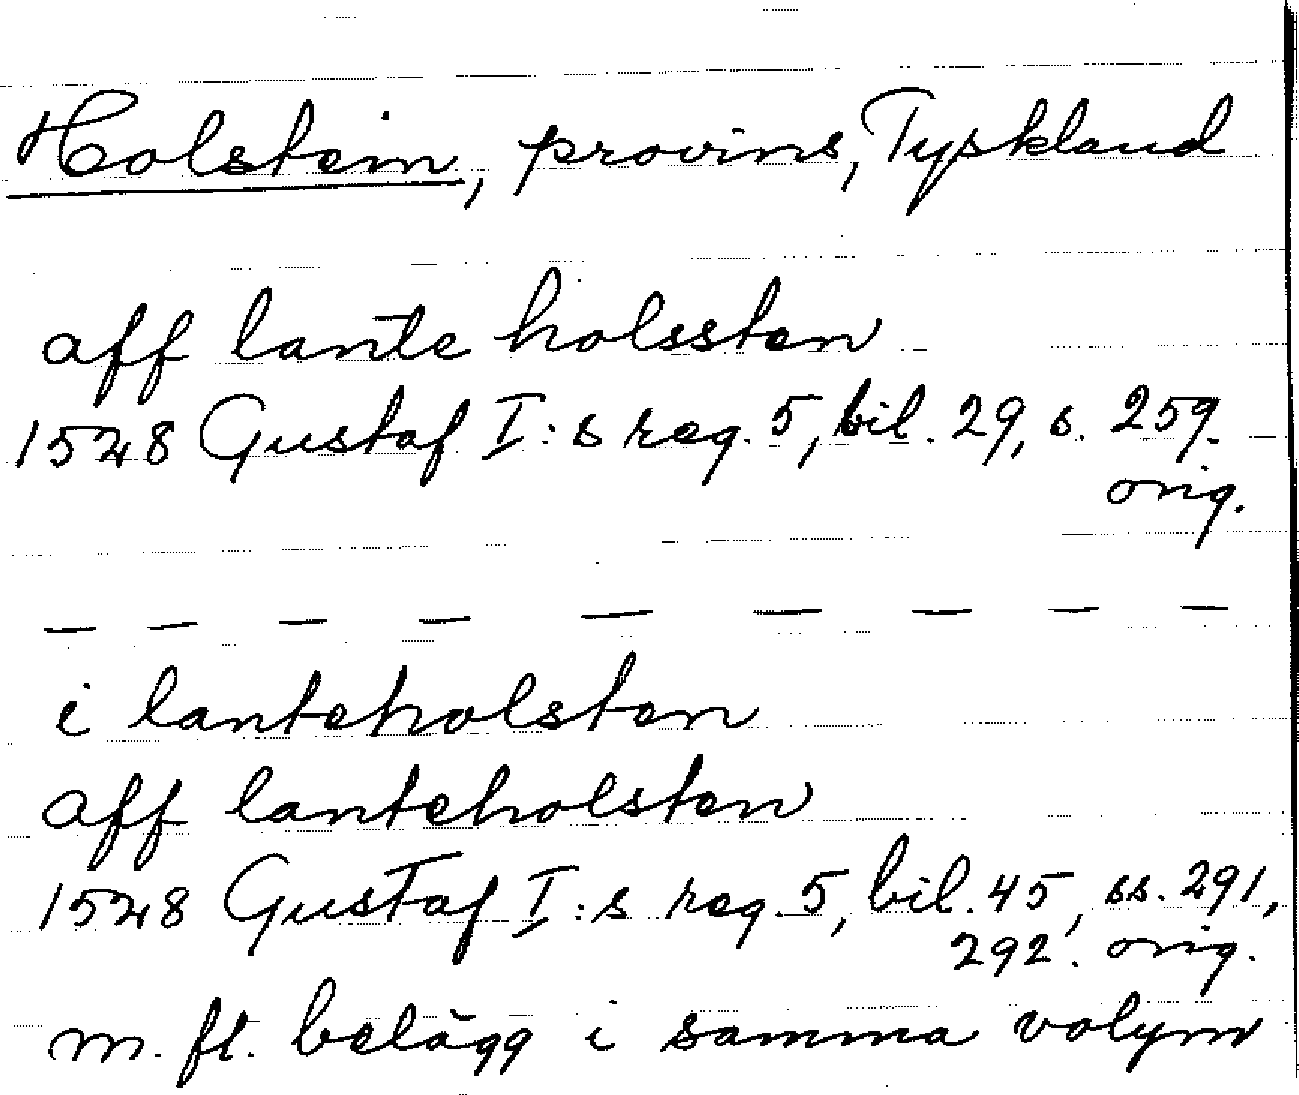 Holstein, provins, Tyskland
aff lante holssten
1528 Gustaf I:s reg. 5, bil. 29, s. 259.
orig.
i lanteholsten
aff lanteholsten
1528 Gustaf I:s reg. 5, bil. 45, ss. 291,
292. orig.
m. fl. belägg i samma volym